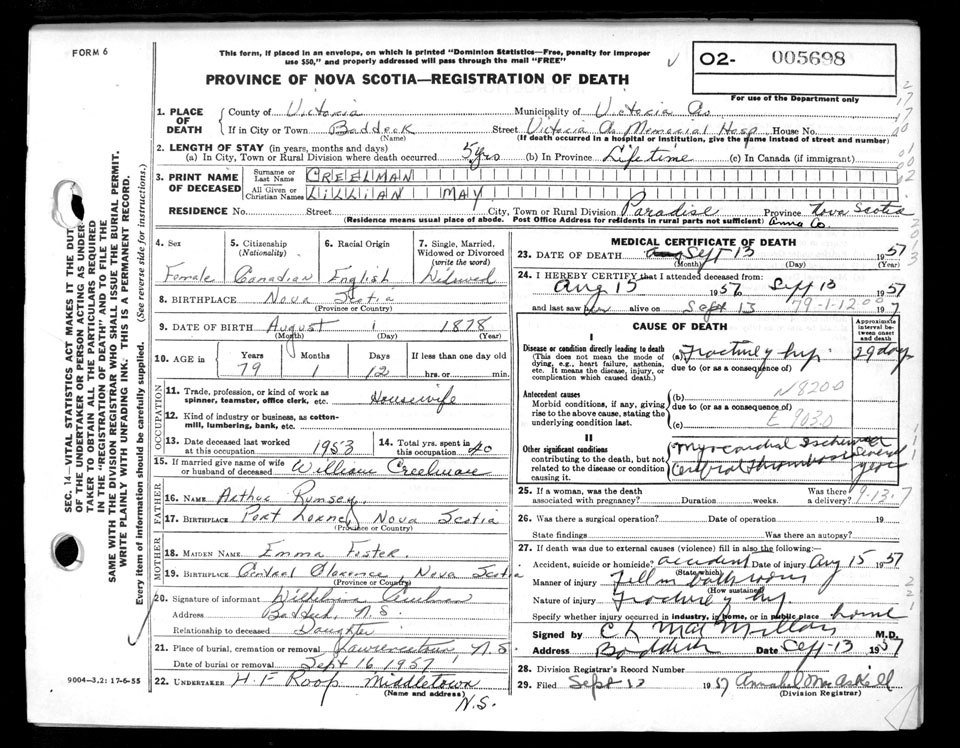 FORM 6
This form, if placed in an envelope, on which is printed "Dominion Statistics—Free, penalty for improper
use $50," and properly addressed will pass through the mail "FREE"
PROVINCE OF NOVA SCOTIA—REGISTRATION OF DEATH
O2- 005698
For use of the Department only
SEC. 14—VITAL STATISTICS ACT MAKES IT THE DUTY
OF THE UNDERTAKER OR PERSON ACTING AS UNDER-
TAKER TO OBTAIN ALL THE PARTICULARS REQUIRED
IN THE "REGISTRATION OF DEATH" AND TO FILE THE
SAME WITH THE DIVISION REGISTRAR WHO SHALL ISSUE THE BURIAL PERMIT.
WRITE PLAINLY WITH UNFADING INK. THIS IS A PERMANENT RECORD.
Every item of information should be carefully supplied. (See reverse side for instructions.)
1. PLACE OF DEATH
County of Victoria Municipality of Victoria Co
If in City or Town Baddeck Street Victoria Co Memorial Hosp House No.
(Name) (If death occurred in a hospital or institution, give the name instead of street and number)
2. LENGTH OF STAY (in years, months and days)
(a) In City, Town or Rural Division where death occurred 5 yrs (b) In Province Lifetime (c) In Canada (if immigrant)
3. PRINT NAME OF DECEASED
Surname or Last Name CREELMAN
All Given or Christian Names LILLIAN MAY
RESIDENCE No. Street City, Town or Rural Division Paradise Province Nova Scotia
(Residence means usual place of abode. Post Office Address for residents in rural parts not sufficient) Anna Co.
4. Sex 5. Citizenship (Nationality) 6. Racial Origin 7. Single, Married, Widowed or Divorced (write the word)
Female Canadian English Widowed
8. BIRTHPLACE Nova Scotia
(Province or Country)
9. DATE OF BIRTH August 1 1878
(Month) (Day) (Year)
10. AGE IN Years Months Days If less than one day old
79 1 12 hrs. or min.
OCCUPATION
11. Trade, profession, or kind of work as spinner, teamster, office clerk, etc. Housewife
12. Kind of industry or business, as cotton-mill, lumbering, bank, etc.
13. Date deceased last worked at this occupation 1953 14. Total yrs. spent in this occupation 40
15. If married give name of wife or husband of deceased William Creelman
FATHER
16. NAME Arthur Rumsey
17. BIRTHPLACE Port Lorne, Nova Scotia
(Province or Country)
MOTHER
18. MAIDEN NAME Emma Foster.
19. BIRTHPLACE Central Clarence Nova Scotia
(Province or Country)
20. Signature of informant Wilhelmina Creelman
Address Baddeck, N.S.
Relationship to deceased Daughter
21. Place of burial, cremation or removal Lawrencetown, N.S.
Date of burial or removal Sept 16 1957
22. UNDERTAKER H. F Roop Middletown
(Name and address) N.S.
9004—3.2: 17-6-55
MEDICAL CERTIFICATE OF DEATH
23. DATE OF DEATH Sept 13 1957
(Month) (Day) (Year)
24. I HEREBY CERTIFY that I attended deceased from:
Aug 15 1957 Sept 13 1957
and last saw her alive on Sept 13 197
79-1-1200
CAUSE OF DEATH
Approximate interval between onset and death
I
Disease or condition directly leading to death
(This does not mean the mode of dying, e.g., heart failure, asthenia, etc. It means the disease, injury, or complication which caused death.)
(a) Fracture of hip. 29 days
due to (or as a consequence of)
Antecedent causes
Morbid conditions, if any, giving rise to the above cause, stating the underlying condition last.
(b) N8200
due to (or as a consequence of)
(c) E 9030
II
Other significant conditions
contributing to the death, but not related to the disease or condition causing it.
Myocardial Ischemia
Cerebral Thrombosis several years
25. If a woman, was the death associated with pregnancy? Duration weeks. Was there a delivery?
9-13-7
26. Was there a surgical operation? Date of operation 19
State findings Was there an autopsy?
27. If death was due to external causes (violence) fill in also the following:
Accident, suicide or homicide? accident Date of injury Aug 15 1957
(State which)
Manner of injury Fell in bathroom
(How sustained)
Nature of injury Fracture of hip.
Specify whether injury occurred in industry, in home, or in public place home
Signed by C L MacMillan M.D.
Address Baddeck Date Sept-13 1957
28. Division Registrar's Record Number
29. Filed Sept 13 1957 Annabel MacAskill
(Division Registrar)